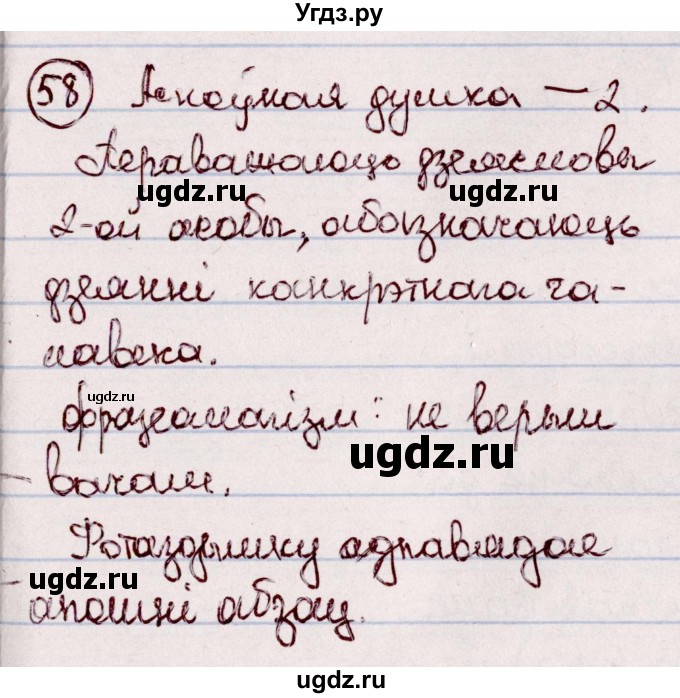 Угдз.ру
58 Асноўная думка – 2.
Пераважаюць дзеясловы
2-ой асобы, абазначаюць
дзеянні канкрэтнага ча-
лавека.
Фразеалагізм: не верыш
вачам.
Фотаздымку адпавядае
апошні абзац.
ugdz.ru
ugdz.ru
ugdz.ru
ugdz.ru
ugdz.ru
ugdz.ru
ugdz.ru